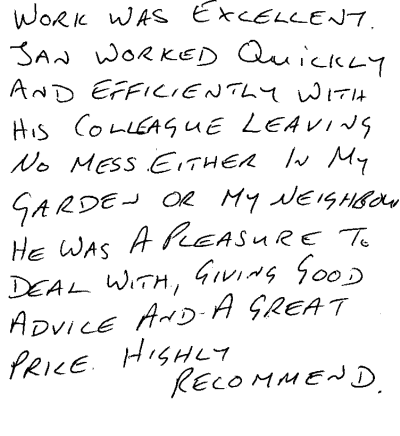 WORK WAS EXCELLENT.
JAN WORKED QUICKLY
AND EFFICIENTLY WITH
HIS COLLEAGUE LEAVING
NO MESS EITHER IN MY
GARDEN OR MY NEIGHBOU
HE WAS A PLEASURE TO
DEAL WITH, GIVING GOOD
ADVICE AND A GREAT
PRICE. HIGHLY
RECOMMEND.